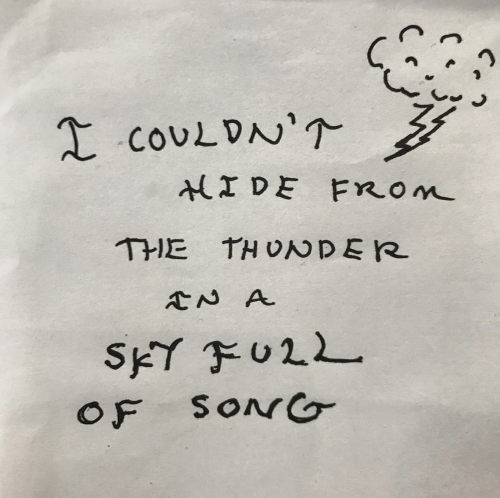 I COULDN'T
HIDE FROM
THE THUNDER
IN A
SKY FULL
OF SONG